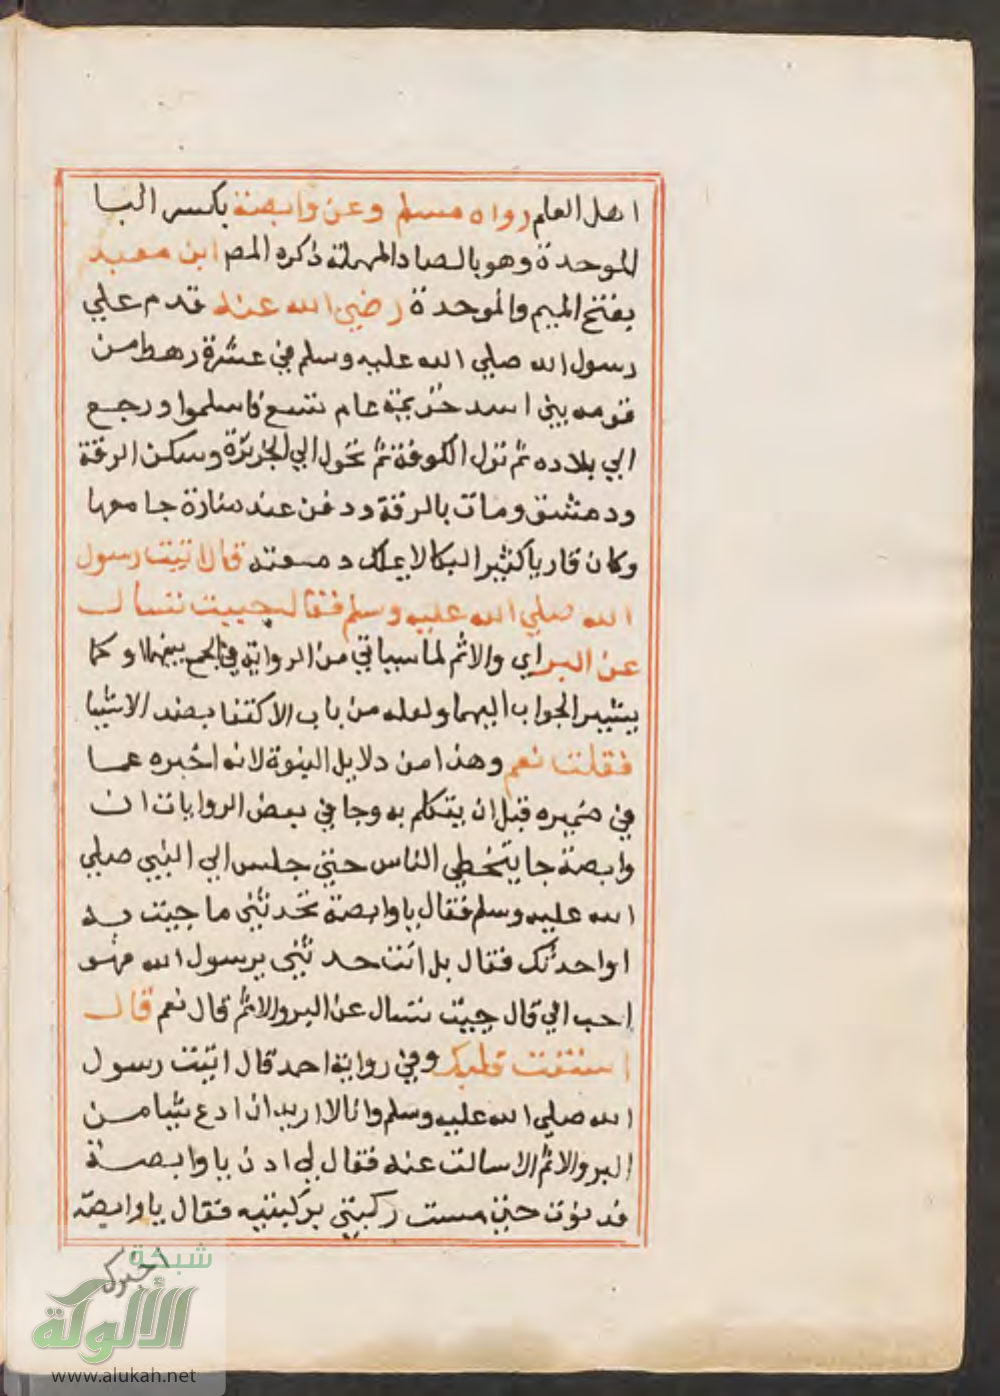 اهل العلم رواه مسلم وعن وابصة بكسر البا
الموحدة وهو بالصاد المهملة ذكره المص ابن معبد
بفتح الميم والموحدة رضي الله عنه قدم علي
رسول الله صلي الله عليه وسلم في عشرة رهط من
قومه بني اسد خزيمة عام تسع فاسلموا ورجع
الي بلاده ثم نزل الكوفة ثم تحول الي الجزيرة وسكن الرقة
ودمشق ومات بالرقة ودفن عند منارة جامعها
وكان قاريا كثير البكا لا يملك دمعته قال اتيت رسول
الله صلي الله عليه وسلم فقال جييت تسال
عن البر اي والاثم لما سياتي من الرواية في الجمع بينهما وكما
يشير الجواب اليهما ولعله من باب الاكتفا بضد الاشيا
فقلت نعم وهذا من دلايل النبوة لانه اخبره عما
في ضميره قبل ان يتكلم به وجا في بعض الروايات ان
وابصة جا يتخطي الناس حتي جلس الي النبي صلي
الله عليه وسلم فقال يا وابصة تحدثني ما جيت به
او احدثك فقال بل انت حدثني يرسول الله فهو
احب الي قال جيت تسال عن البر والاثم قال نعم قال
استفت قلبك وفي رواية احمد قال اتيت رسول
الله صلي الله عليه وسلم وانا لا اريد ان ادع شيا من
البر والاثم الا سالت عنه فقال لي ادن يا وابصة
فدنوت حتي مست ركبتي بركبتيه فقال يا وابصة
اخبرك
شبكة
الألوكة
www.alukah.net